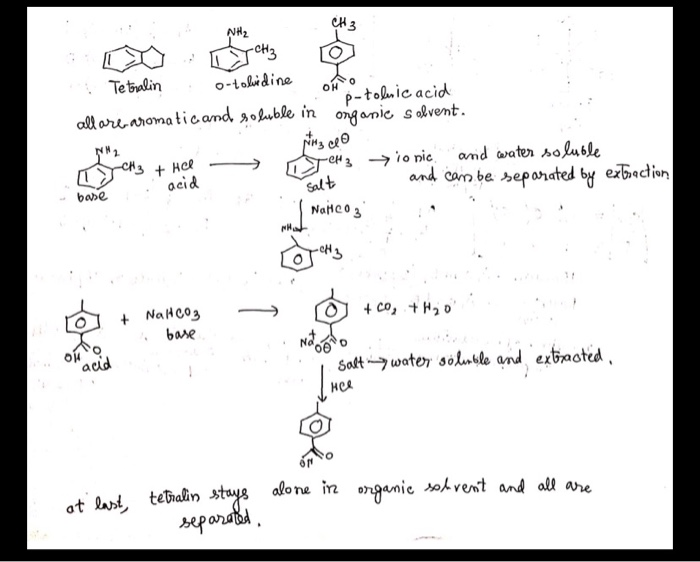 NH2
CH3
CH3
OH O
Tetralin
o-toluidine
p-toluic acid
all are aromatic and soluble in organic solvent.
NH2
CH3 + HCl
acid
base
+
NH3 Cl⊖
CH3
salt
→ ionic and water soluble
and can be separated by extraction
NaHCO3
NH2
CH3
+ NaHCO3
base
OH O
acid
+ CO2 + H2O
+
Na O⊖ O
Salt → water soluble and extracted.
HCl
OH O
at last, tetralin stays alone in organic solvent and all are
separated.